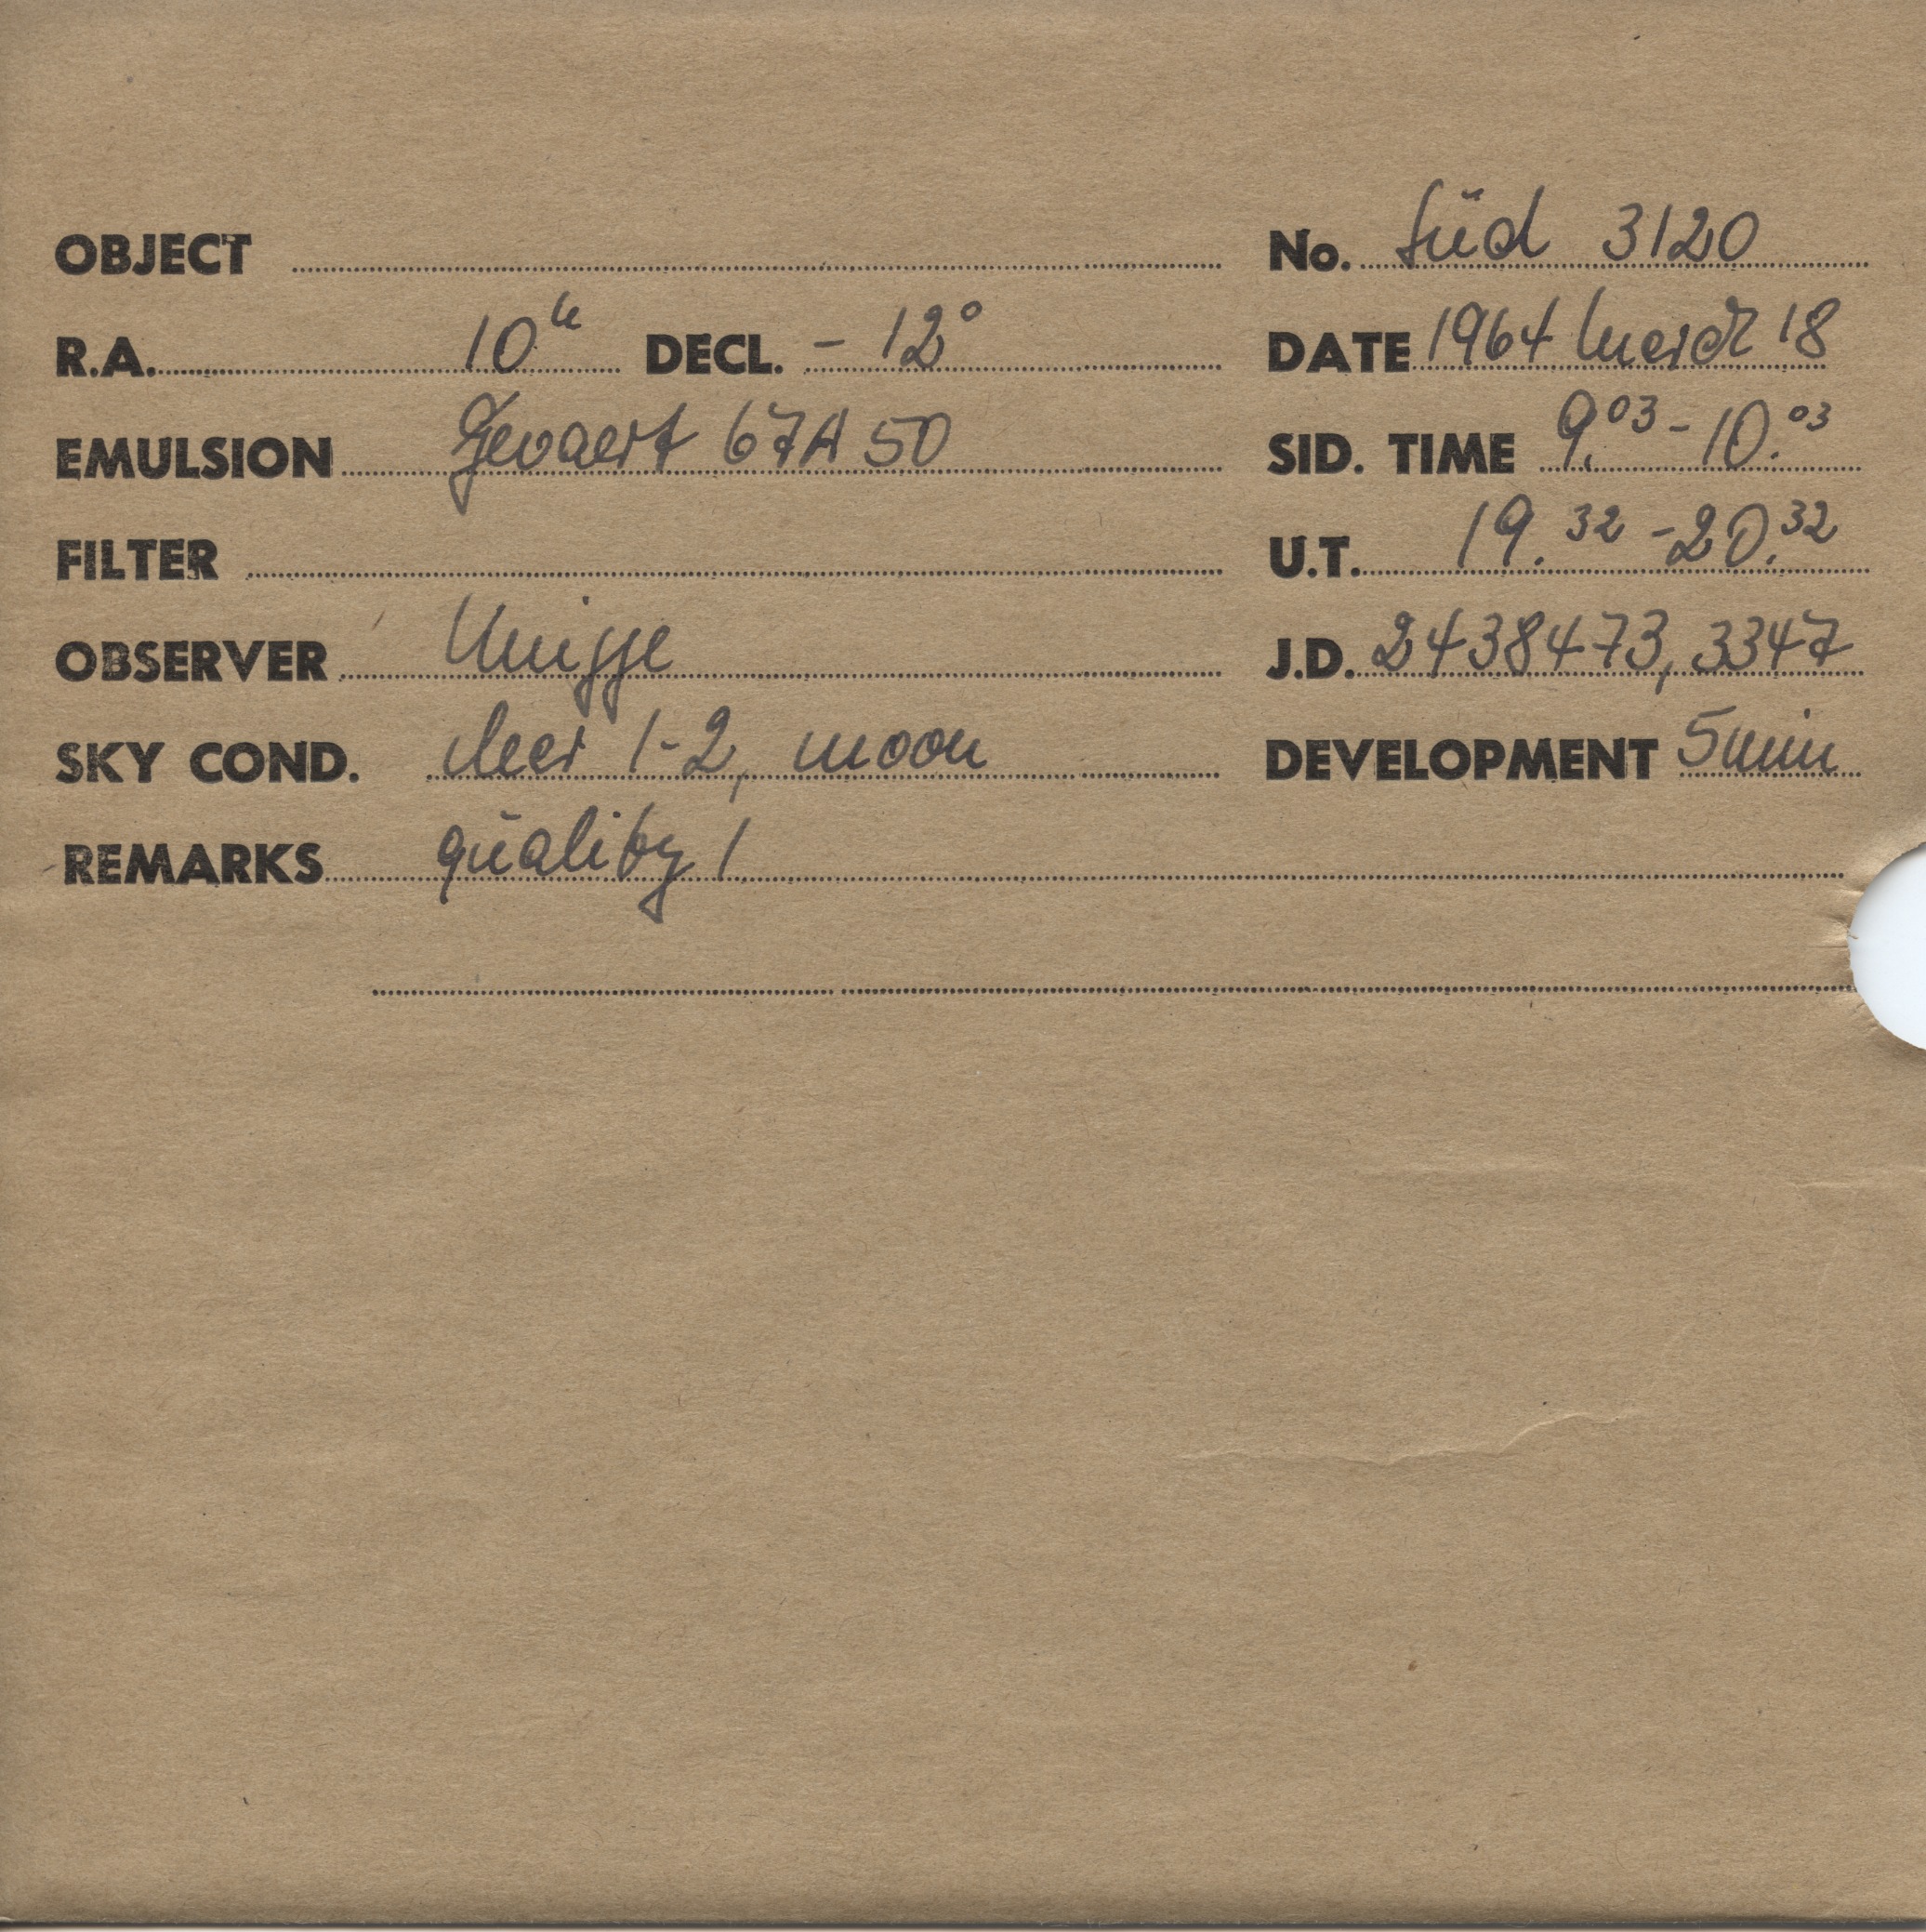 OBJECT No. Süd 3120
R.A. 10h DECL. - 12°
DATE 1964 March 18
EMULSION Gevaert 67A50
SID. TIME 9.03 - 10.03
FILTER
U.T. 19.32 - 20.32
OBSERVER
J.D. 2438473,3347
SKY COND. clear 1-2, moon
DEVELOPMENT 5min
REMARKS quality 1